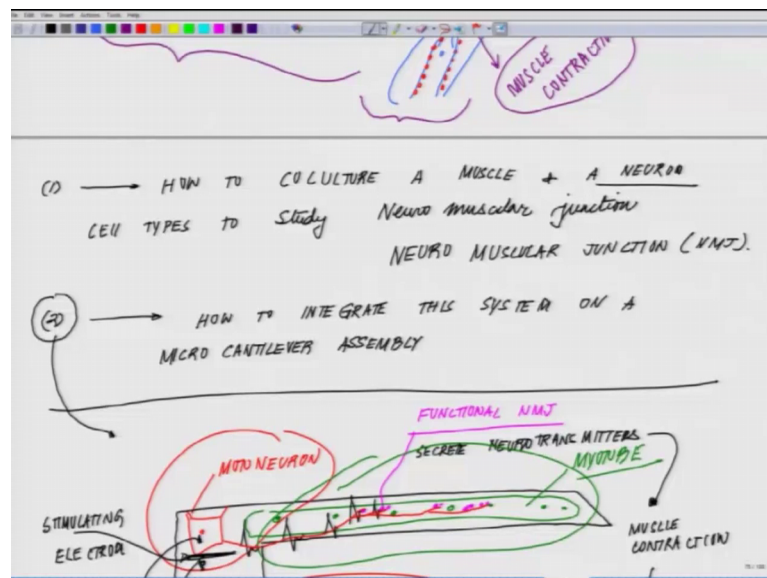 File Edit View Insert Actions Tools Help
MUSCLE
CONTRACTION
(1) → HOW TO COLULTURE A MUSCLE + A NEURON
CELL TYPES TO Study Neuro muscular junction
NEURO MUSCULAR JUNCTION (NMJ).
(2) → HOW TO INTEGRATE THIS SYSTEM ON A
MICRO CANTILEVER ASSEMBLY
FUNCTIONAL NMJ
SECRETE NEUROTRANCMITTERS
MOTONEURON
MYOTUBE
STIMULATING
ELECTRODE
MUSCLE
CONTRACTION